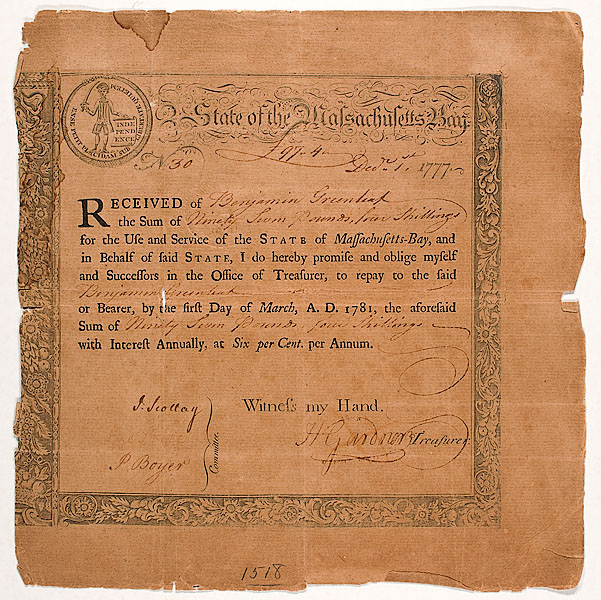 ENSE PETIT PLACIDAM SUB
INDE
PEND
ENCE
State of the Massachusetts Bay
No 30
£97..4..
Decr. 1st 1777
RECEIVED of Benjamin Greenleaf
the Sum of Ninety Seven Pounds, four Shillings
for the Uſe and Service of the STATE of Maſſachuſetts-Bay, and
in Behalf of ſaid STATE, I do hereby promiſe and oblige myſelf
and Succeſſors in the Office of Treaſurer, to repay to the ſaid
Benjamin Greenleaf
or Bearer, by the firſt Day of March, A. D. 1781, the aforeſaid
Sum of Ninety Seven Pounds, four Shillings
with Intereſt Annually, at Six per Cent. per Annum.
J. Scollay
Witneſs my Hand,
H Gardner Treaſurer
P Boyer
Committee.
1518